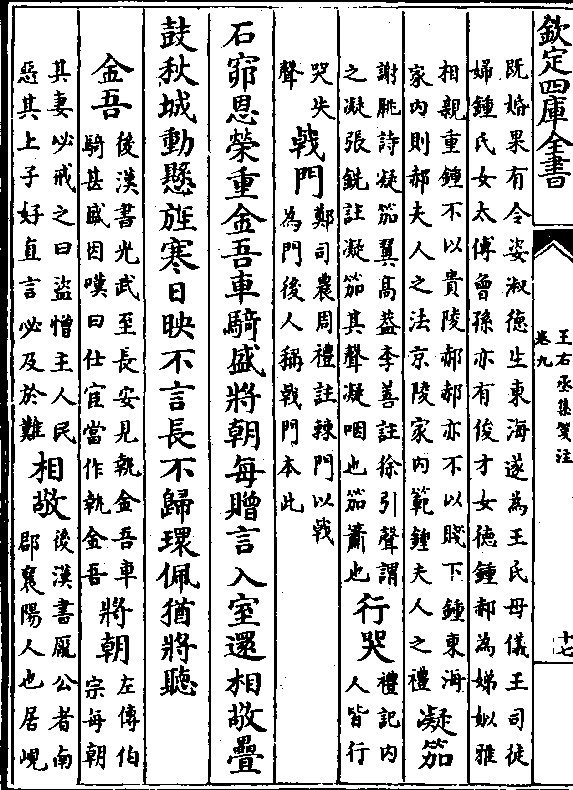 欽定四庫全書
王右丞集箋注
卷九
十七
既婚果有令姿淑德生東海遂為王氏母儀王司徒
婦鍾氏女太傅曾孫亦有俊才女徳鍾郝為娣姒雅
相親重鍾不以貴陵郝郝亦不以賤下鍾東海
家内則郝夫人之法京陵家内範鍾夫人之禮
凝笳
謝朓詩凝笳翼髙葢李善註徐引聲謂
之凝張銑註凝笳其聲凝咽也笳簫也
行哭
禮記内
人皆行
哭失
聲
戟門
鄭司農周禮註棘門以戟
為門後人稱戟門本此
石窌恩榮重金吾車騎盛將朝每贈言入室還相敬疊
鼓秋城動懸旌寒日映不言長不歸環佩猶將聽
金吾
後漢書光武至長安見執金吾車
騎甚盛因嘆曰仕宦當作執金吾
將朝
左傳伯
宗每朝
其妻必戒之曰盜憎主人民
惡其上子好直言必及於難
相敬
後漢書龎公者南
郡襄陽人也居峴